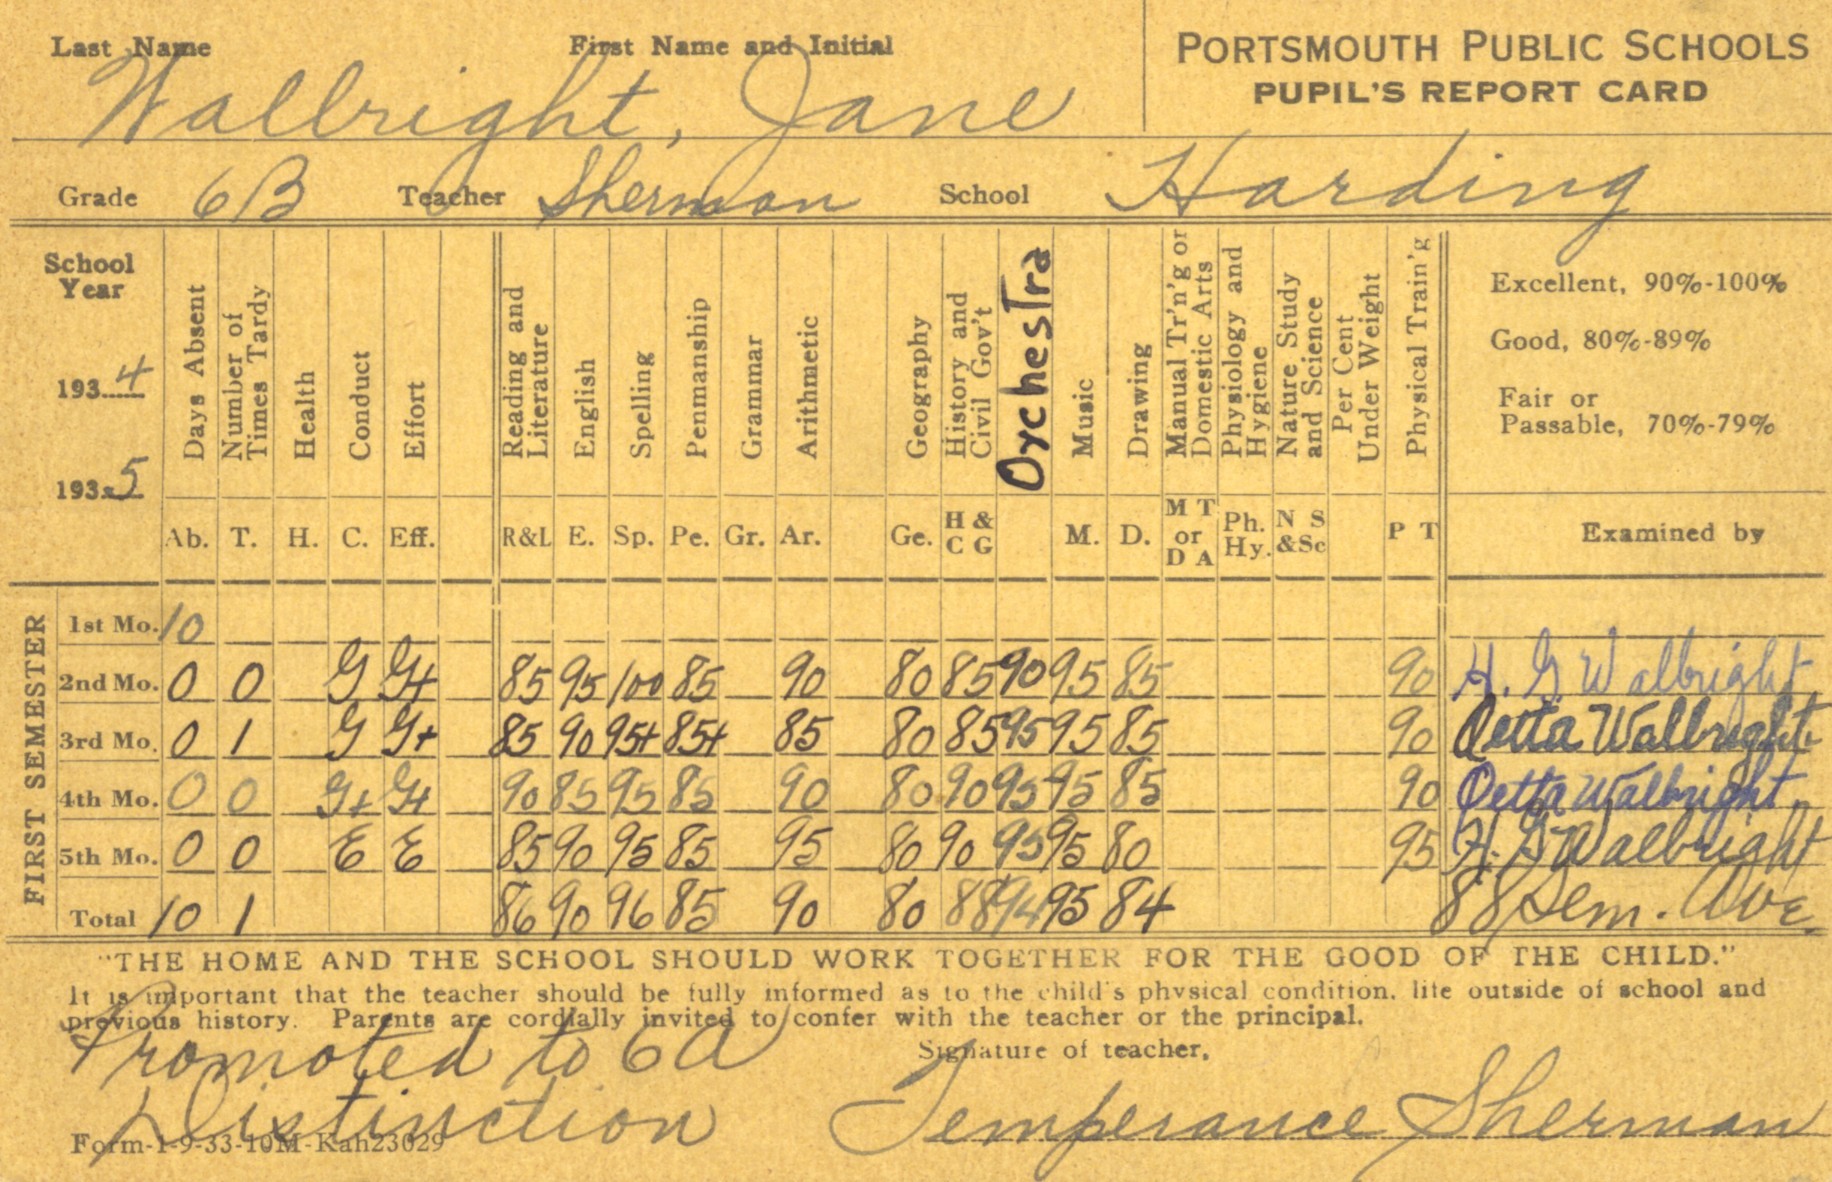 Last Name First Name and Initial
Walbright, Jane
PORTSMOUTH PUBLIC SCHOOLS
PUPIL'S REPORT CARD
Grade 6B Teacher Sherman School Harding
School Year 1934 1935
Days Absent
Number of Times Tardy
Health
Conduct
Effort
Reading and Literature
English
Spelling
Penmanship
Grammar
Arithmetic
Geography
History and Civil Gov't
Orchestra
Music
Drawing
Manual Tr'n'g or Domestic Arts
Physiology and Hygiene
Nature Study and Science
Per Cent Under Weight
Physical Train'g
Excellent, 90%-100%
Good, 80%-89%
Fair or
Passable, 70%-79%
Ab. T. H. C. Eff. R&L E. Sp. Pe. Gr. Ar. Ge. H & C G M. D. M T or D A Ph. Hy. N S &Sc P T Examined by
FIRST SEMESTER
1st Mo. 10
2nd Mo. 0 0 G G+ 85 95 100 85 90 80 85 90 95 85 90 H. G Walbright
3rd Mo. 0 1 G G+ 85 90 95+ 85+ 85 80 85 95 95 85 90 Oetta Walbright.
4th Mo. 0 0 G+ G+ 90 85 95 85 90 80 90 95 95 85 90 Oetta Walbright.
5th Mo. 0 0 E E 85 90 95 85 95 80 90 95 95 80 95 H. G Walbright
Total 10 1 86 90 96 85 90 80 88 94 95 84 88 Sem. Ave.
"THE HOME AND THE SCHOOL SHOULD WORK TOGETHER FOR THE GOOD OF THE CHILD."
It is important that the teacher should be fully informed as to the child's physical condition, life outside of school and
previous history. Parents are cordially invited to confer with the teacher or the principal.
Promoted to 6A
Signature of teacher,
Distinction
Temperance Sherman
Form-1-9-33-10M-Kah23029